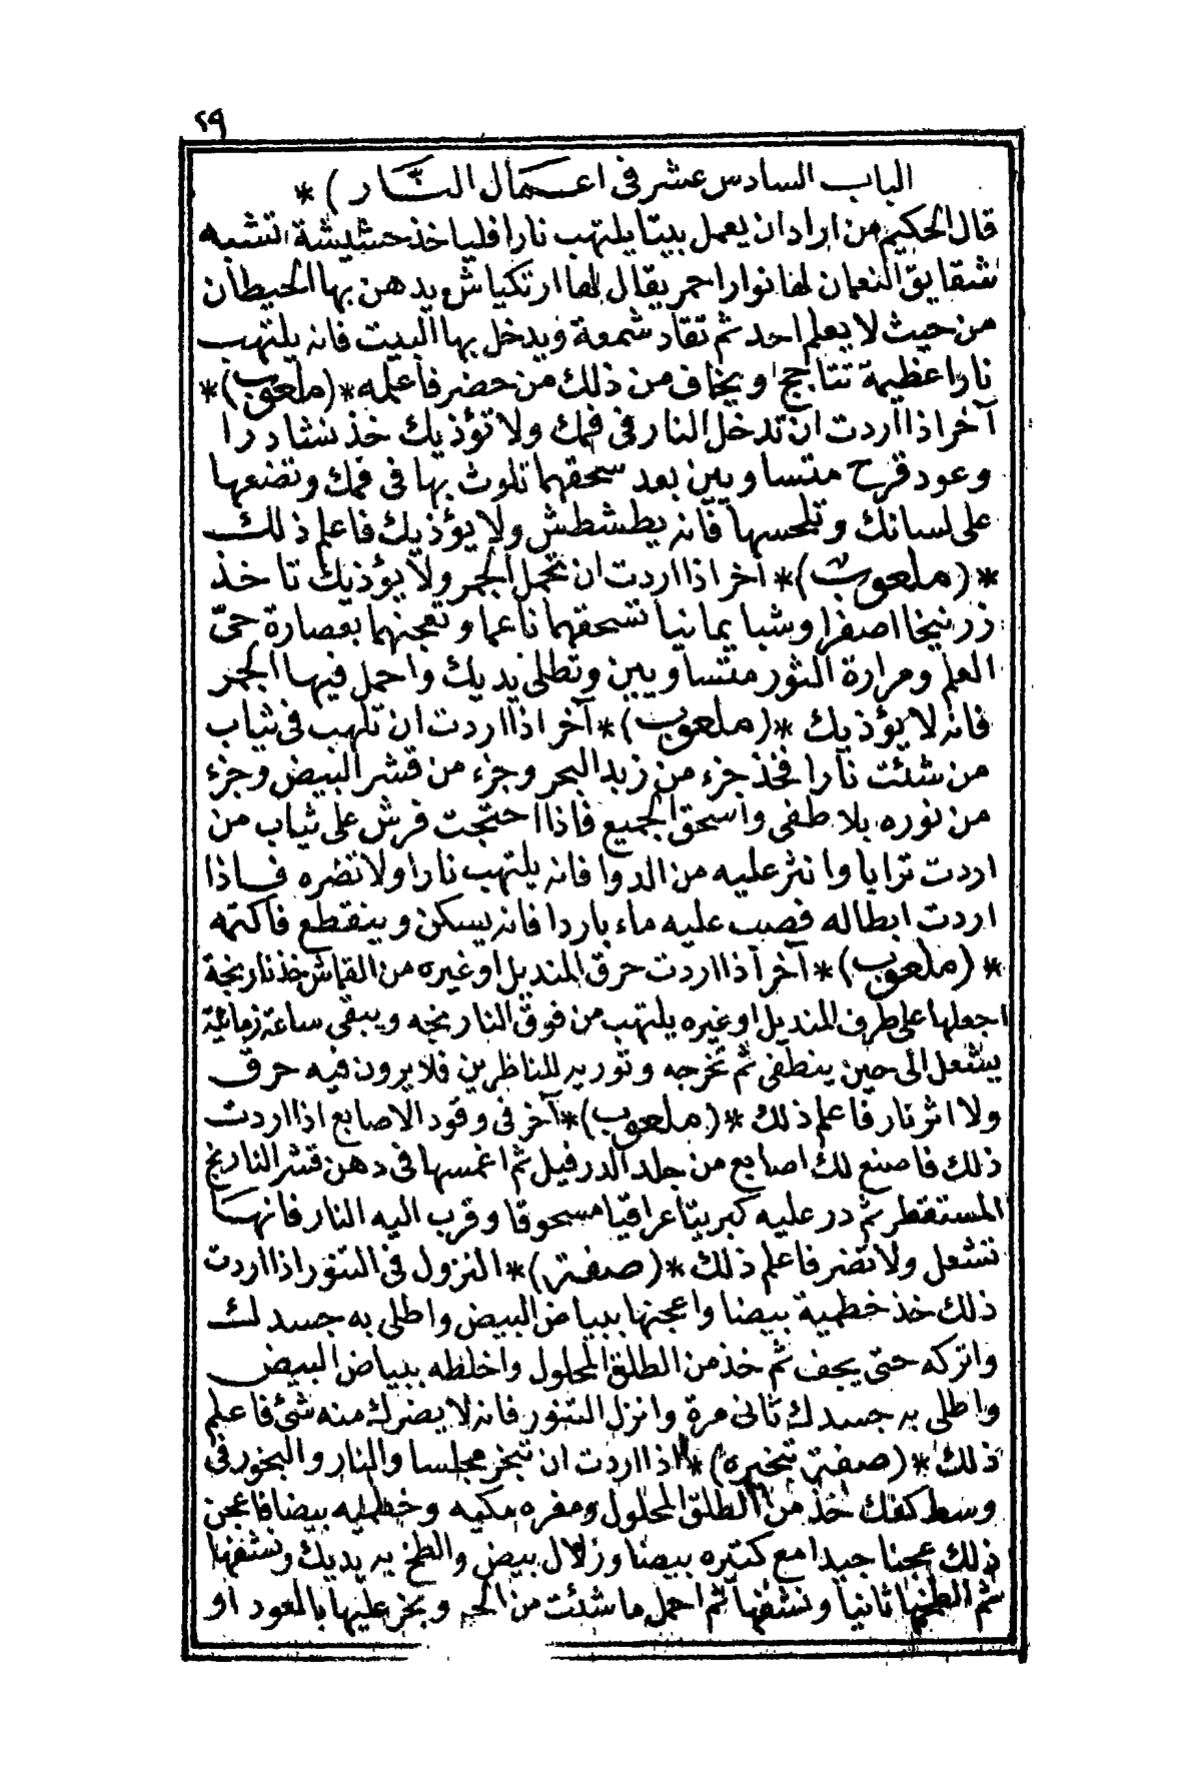 ٢٩
الباب السادس عشر في اعمال النار ) *
قال الحكيم من اراد ان يعمل بيتا يلتهب نارا فلياخذ حشيشة تشبه
شقايق النعمان لها نوار احمر يقال لها ارتكياش يدهن بها الحيطان
من حيث لا يعلم احد ثم تقاد شمعة ويدخل بها البيت فانه يلتهب
نارا عظيمة تتاجج ويخاف من ذلك من حضر فاعلمه * (ملعوب) *
آخر اذا اردت ان تدخل النار في فمك ولا تؤذيك خذ نشادرا
وعود قرح متساويين بعد سحقهما تلوث بها في فمك وتضعها
على لسانك وتلحسها فانه يطشطش ولا يؤذيك فاعلم ذلك
* (ملعوب) * آخر اذا اردت ان تحمل الجمر ولا يؤذيك تاخذ
زرنيخا اصفرا وشبا يمانيا تسحقهما ناعما وتعجنهما بعصارة حيّ
العلم ومرارة الثور متساويين وتطلى يديك واحمل فيها الجمر
فانه لا يؤذيك * (ملعوب) * آخر اذا اردت ان تلهب في ثياب
من شئت نارا فخذ جزء من زبد البحر وجزء من قشر البيض وجزء
من نوره بلا طفى واسحق الجميع فاذا احتجت فرش على ثياب من
اردت ترايا وانثر عليه من الدوا فانه يلتهب نارا ولا تضره فاذا
اردت ابطاله فصب عليه ماء باردا فانه يسكن وينقطع فاكتمه
* (ملعوب) * آخر اذا اردت حرق المنديل او غيره من القماش خذ نارنجة
اجعلها على طرف المنديل او غيره يلتهب من فوق النارنجه ويبقى ساعة زمانية
يشعل الى حين ينطفى ثم تخرجه وتوريه للناظرين فلا يرون فيه حرق
ولا اثر نار فاعلم ذلك * (ملعوب) * آخر في وقود الاصابع اذا اردت
ذلك فاصنع لك اصابع من جلد الدرفيل ثم اغمسها في دهن قشر النارنج
المستقطر ثم در عليه كبريتا عراقيا مسحوقا وقرب اليه النار فانها
تشعل ولا تضر فاعلم ذلك * (صفة) * النزول في التنور اذا اردت
ذلك خذ خطمية بيضا واعجنها ببياض البيض واطلى به جسدك
واتركه حتى يجف ثم خذ من الطلق المحلول واخلطه ببياض البيض
واطلى به جسدك ثانى مرة وانزل التنور فانه لا يضرك منه شئ فاعلم
ذلك * (صفة تبخيره) * اذا اردت ان تبخر مجلسا والنار والبخور في
وسط كفك خذ من الطلق المحلول ومغره مكيه وخطميه بيضا فاعجن
ذلك عجنا جيدا مع كتيره بيضا وزلال بيض والطخ به يديك ونشفها
ثم الطخها ثانيا ونشفها ثم احمل ما شئت من الجمر وبخر عليها بالعود او